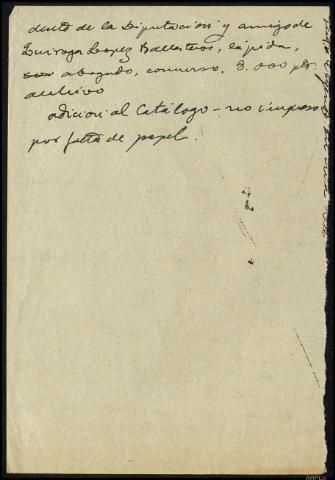 dente de la Diputación y amigo de
Quiroga Lopez Ballesteros, lapida,
abogado, concurso. 3.000 pts.
archivo
adicion al Catálogo - no impreso
por falta de papel.